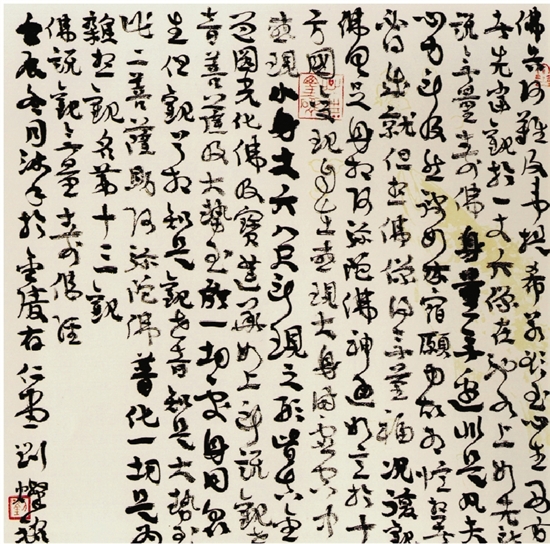 佛告阿難及韋提希若欲至心生西方
者先當觀於一丈六像在池水上如先所
說無量壽佛身量無邊非是凡夫
心力所及然彼如來宿願力故有憶想者
必得成就但想佛像得無量福況復觀
佛具足身相阿彌陀佛神通如意於十
方國變現自在或現大身滿虛空中
或現小身丈六八尺所現之形皆真金
色圓光化佛及寶蓮華如上所說觀世
音菩薩及大勢至於一切處身同眾
生但觀首相知是觀世音知是大勢至
此二菩薩助阿彌陀佛普化一切是為
雜想觀名第十三觀
佛說觀無量壽佛經
壬辰冬月沐手於金陵 劉燦銘